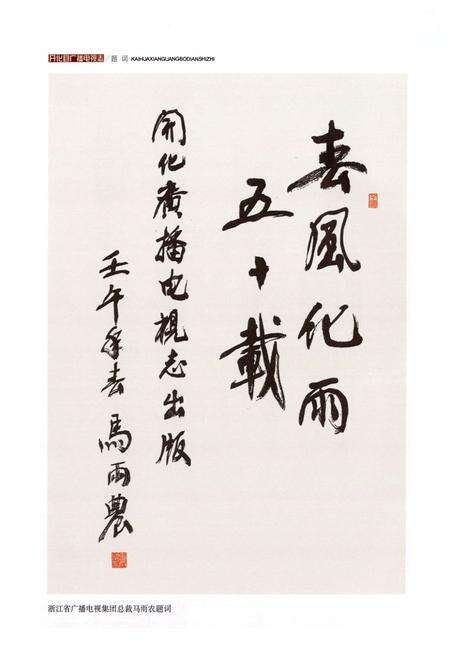 开化县广播电视志／题 词 KAIHUAXIANGUANGBODIANSHIZHI
春風化雨
五十載
開化廣播电視志出版
壬午年春 馬雨農
浙江省广播电视集团总裁马雨农题词